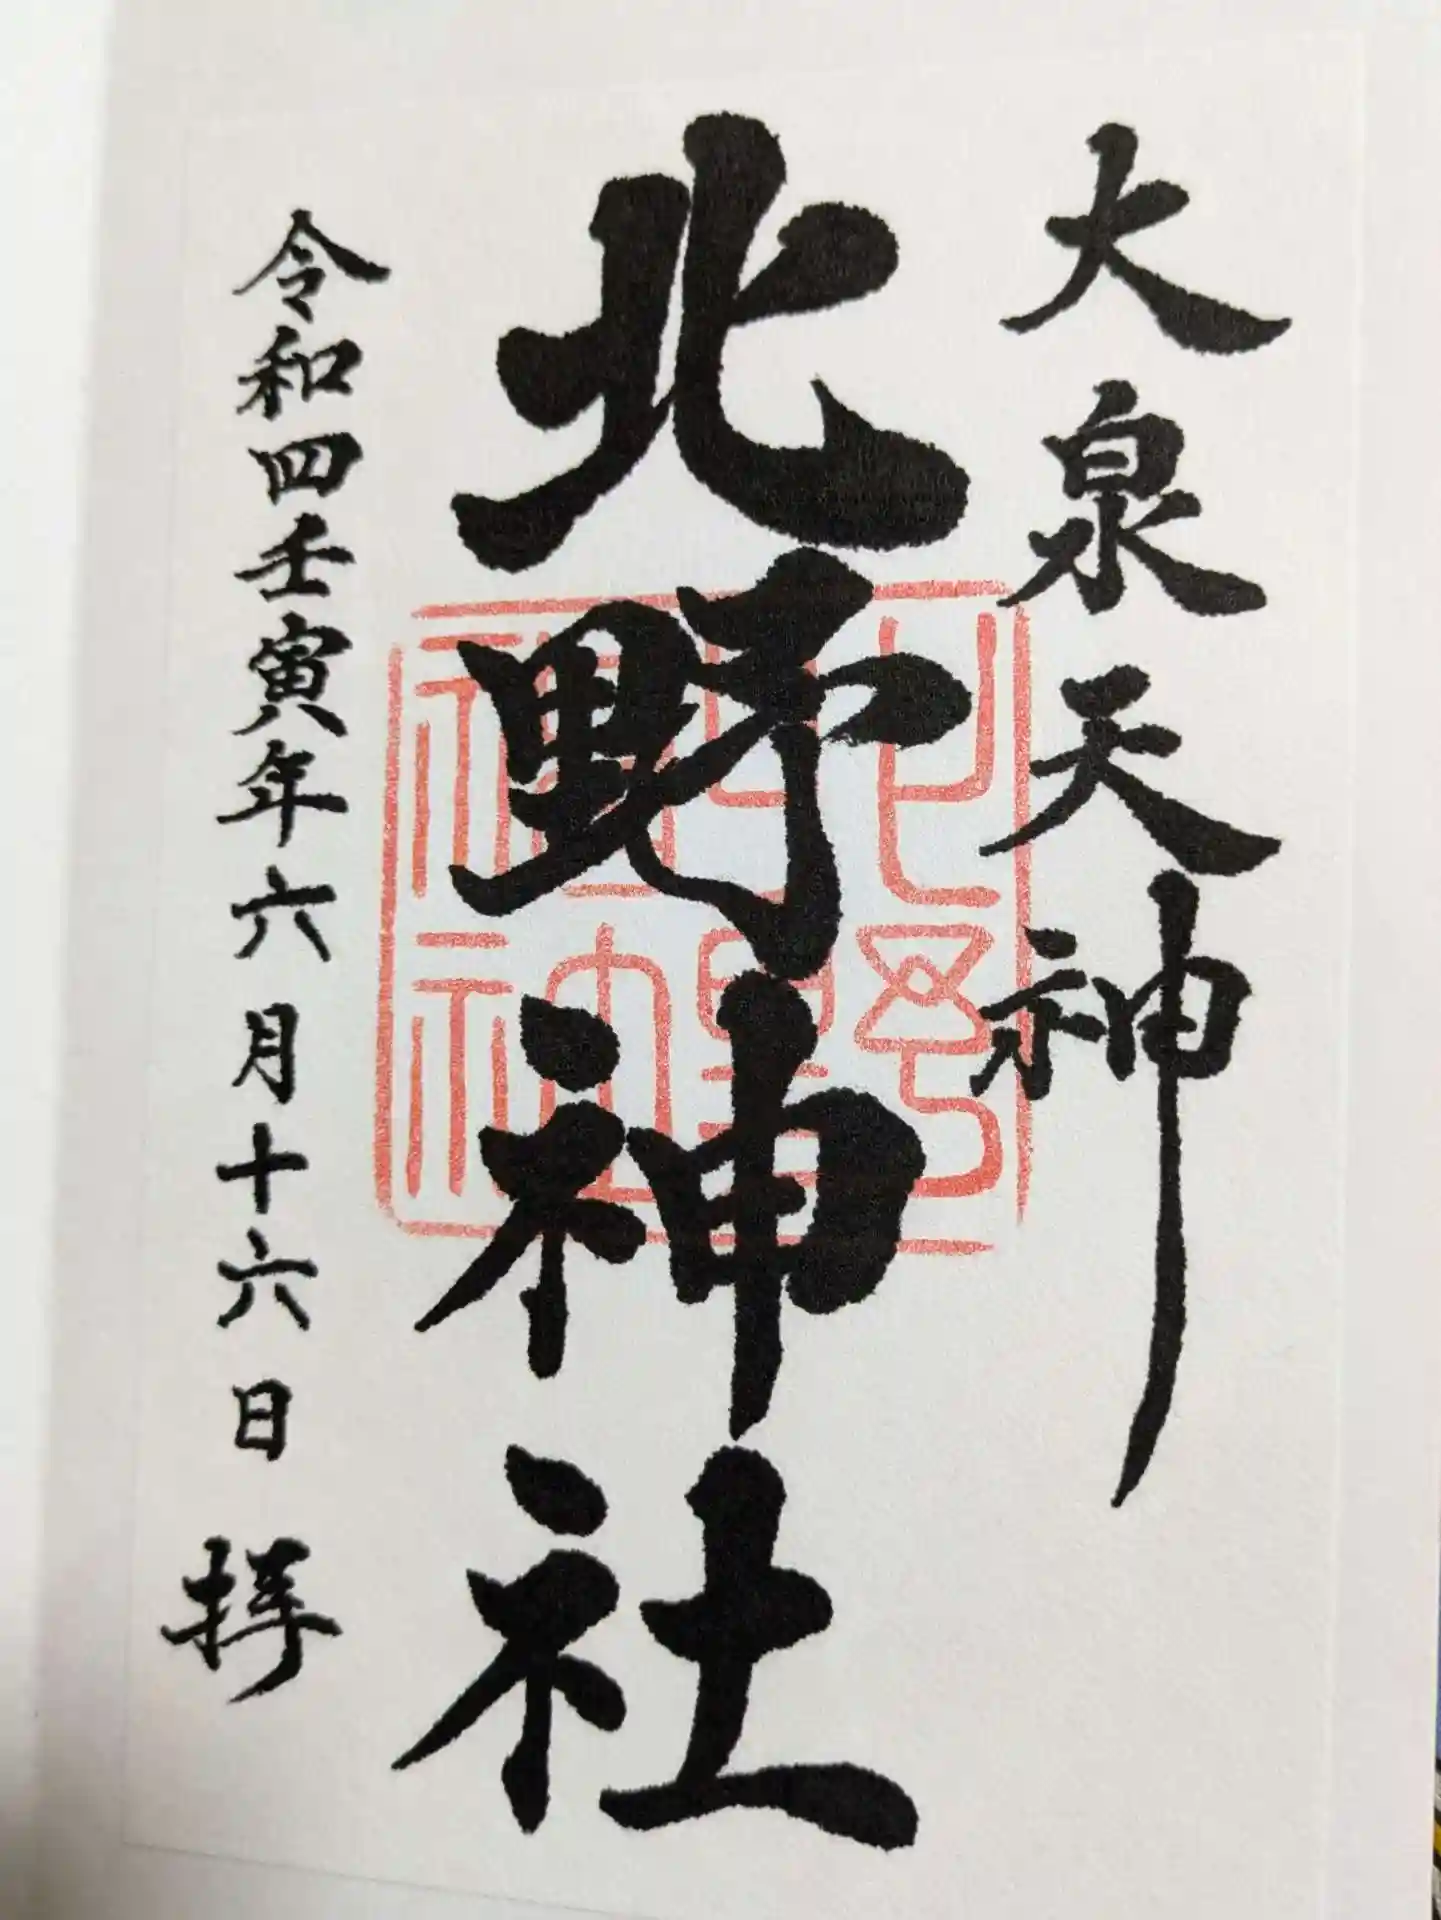 大泉天神
北野神社
令和四壬寅年六月十六日 拝